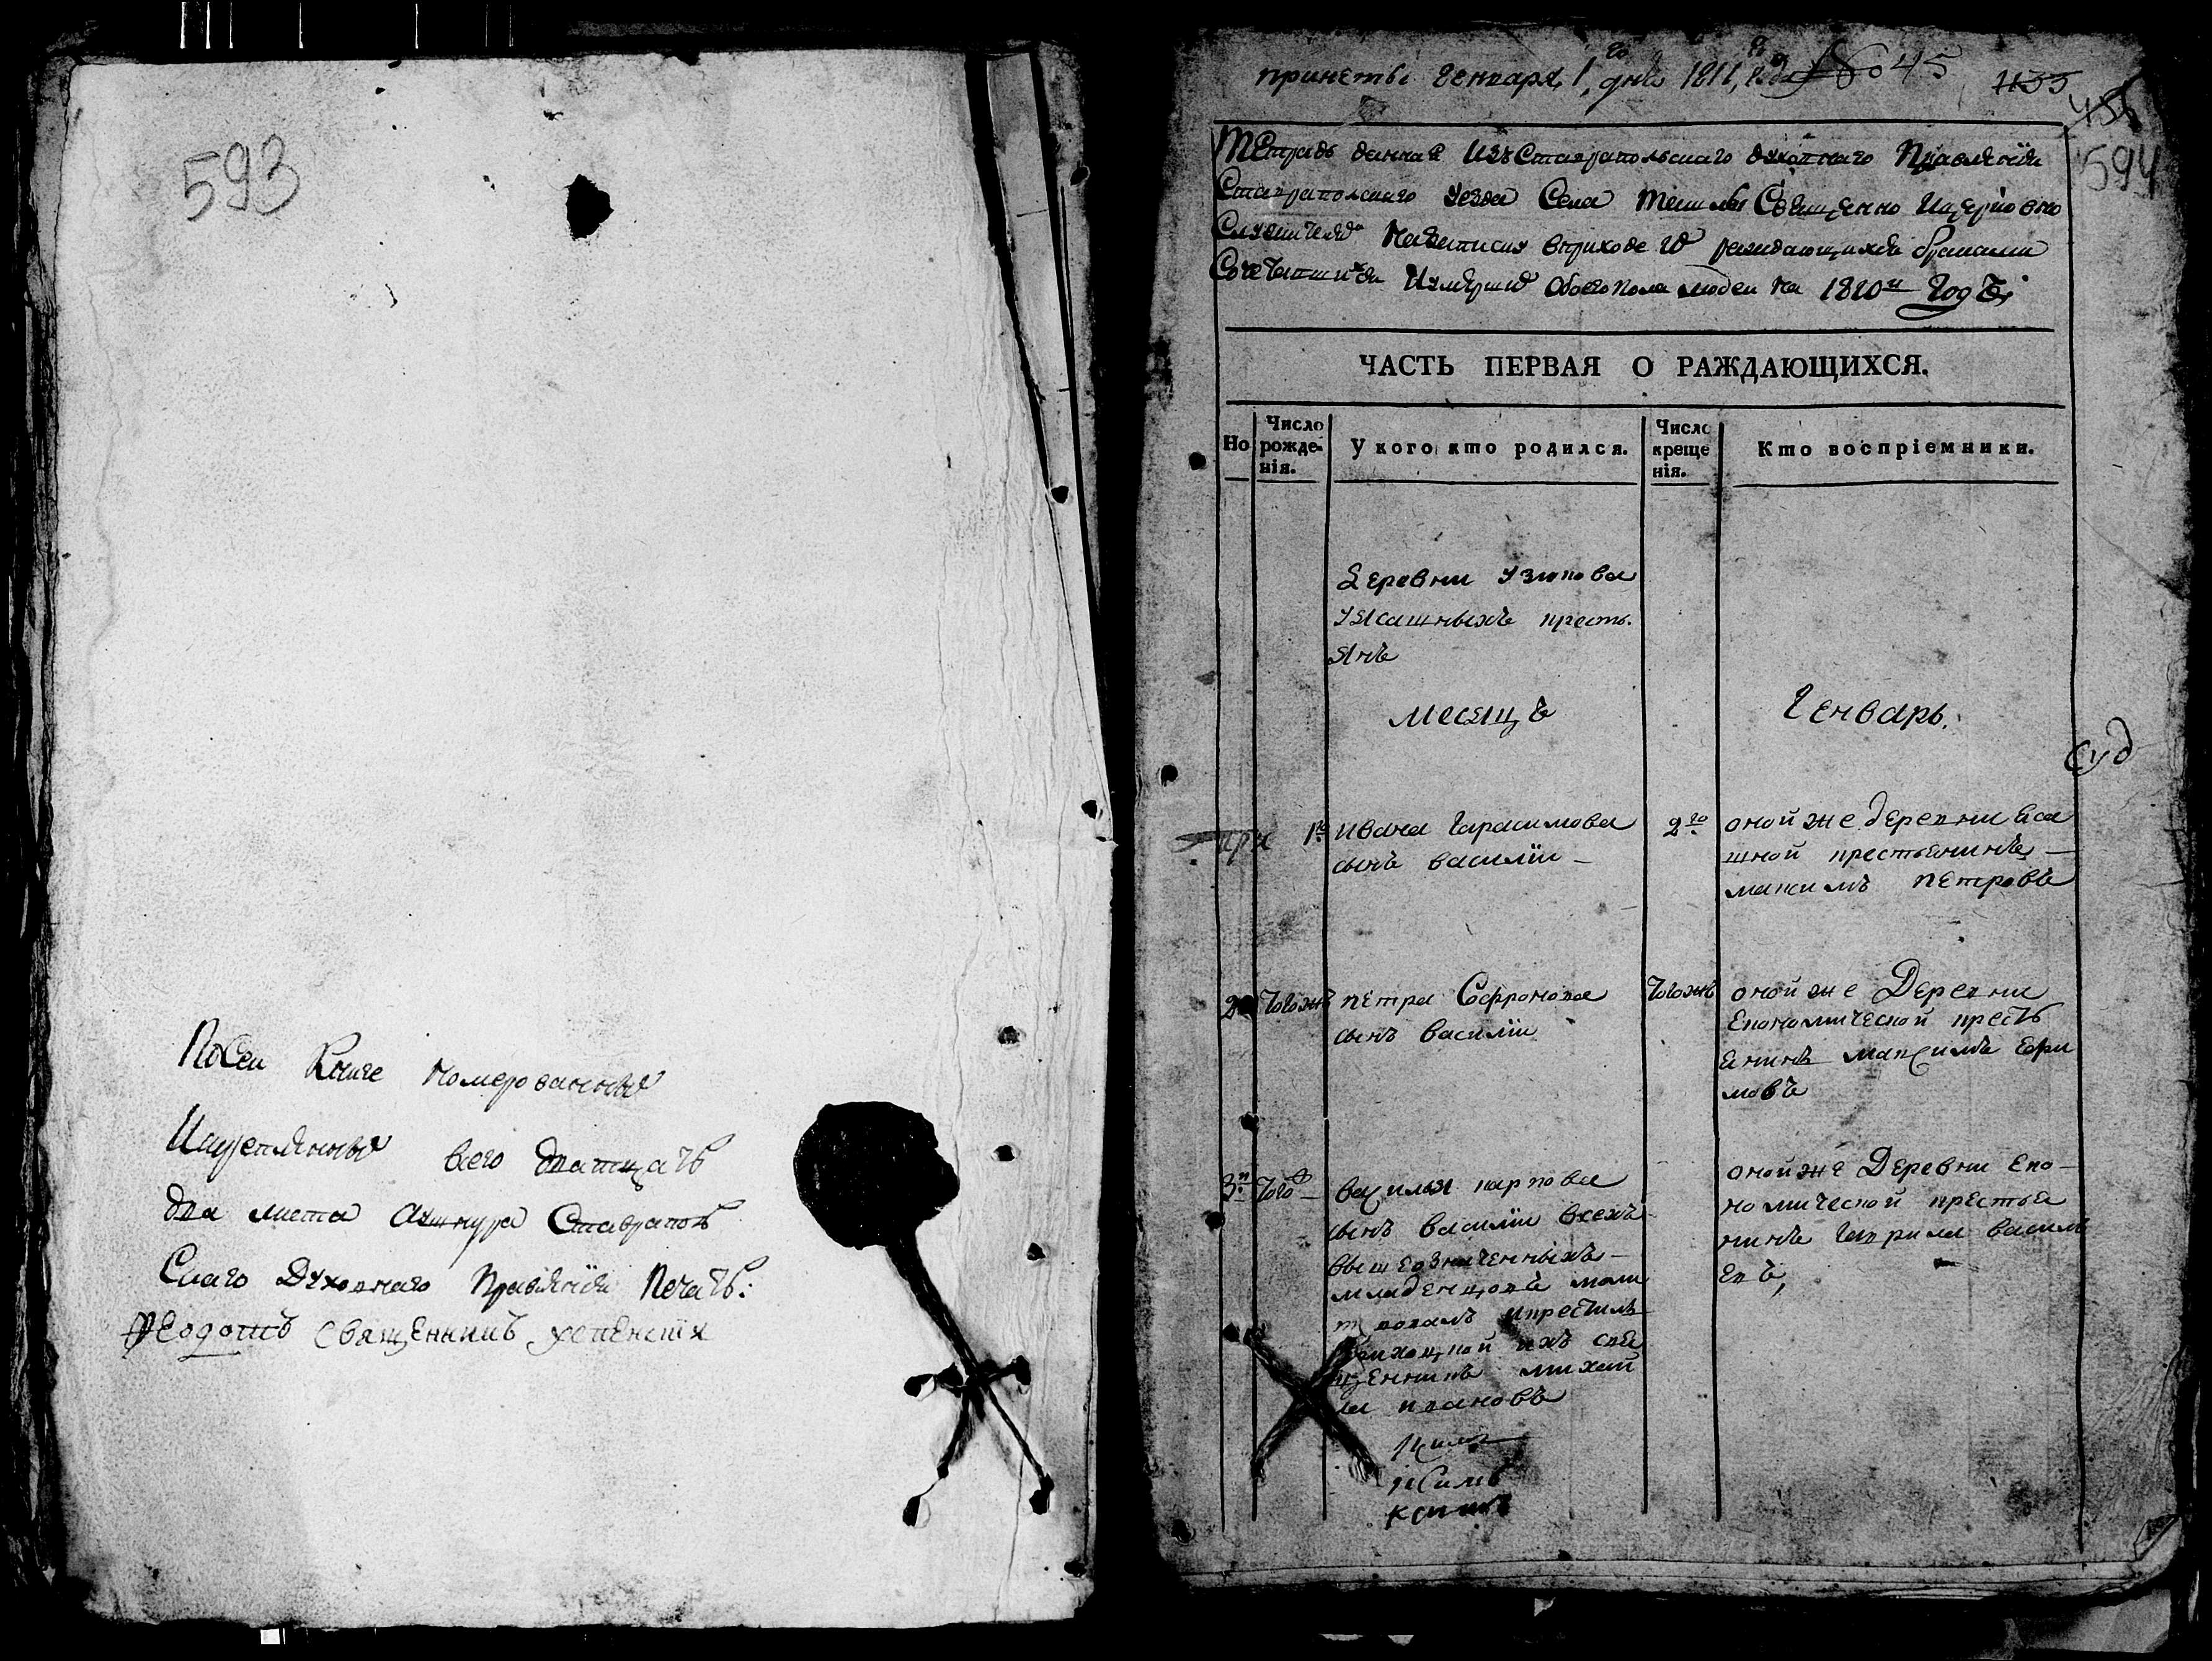 593
По Сеи Книге номерованных
Искрепленных всего дватцать
два листа Ахшнура Ставраполь
Скаго Духовнаго Правления Печать:
Феодотъ священникъ успенски
принеты Генваря 1 го дня 1811, года № 45
433
594
Тетрадь данная Изъ Ставрапольскаго духовнаго Правления
Ставрапольскаго уезда Села Ташлы Священно Ицерковно
Служителямъ Назаписку вприходе их раждающихся браками
Сочетавшихся Иумерших Обоего пола людеи На 1810 й Годъ
ЧАСТЬ ПЕРВАЯ О РАЖДАЮЩИХСЯ.
Но
Число рожденія.
У кого кто родился.
Число крещенія.
Кто воспріемники.
Деревни узюкова
уясашныхъ кресть.
янъ
месяцъ
Генварь.
суд
при
1 го
ивана Гарасимова
сынъ василiи
2 го
оной же деревни яса
шной крестьенинъ
максимъ петровъ
2
Тогож
петра Софронова
сынъ василiи
Тогожъ
оной же Деревни
Економической кресть
янинъ максимъ ефи
мовъ
3 й
Того ж
василья карпова
сынъ василiи всехъ
вышеозначенныхъ
младенцовъ моли
твовалъ икрестилъ
приходской ихъ свя
щенникъ михаи
ла ивановъ
оной же Деревни Еко
номической крестья
нинъ гаврила василь
евъ,